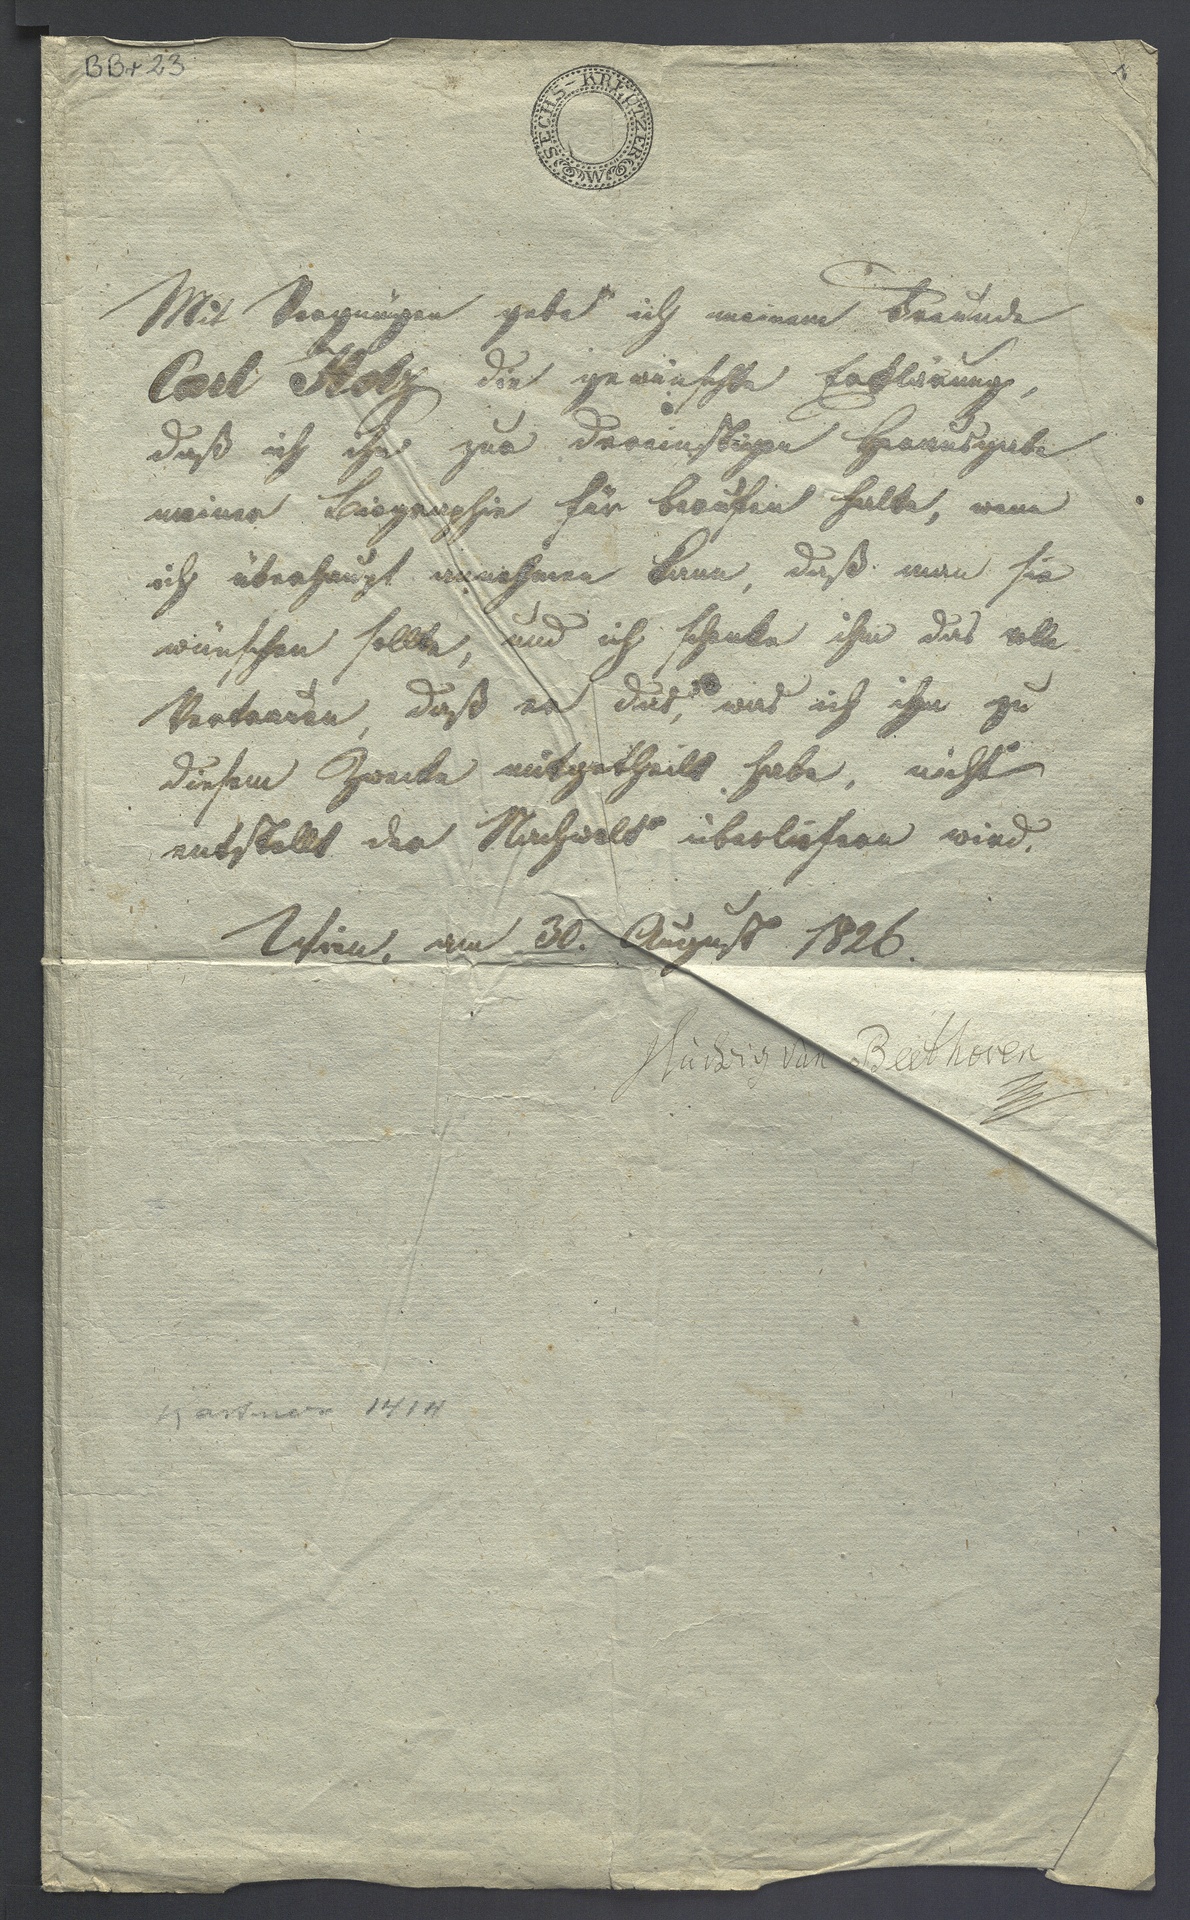 BBr 23
SECHS-KREUTZER W
Mit Vergnügen gebe ich meinem Freunde
Carl Holz die gewünschte Erklärung,
daß ich ihn zur dereinstigen Herausgabe
meiner Biographie für berufen halte, wenn
ich überhaupt annehmen kann, daß man sie
wünschen sollte, und ich schenke ihm das volle
Vertrauen, daß er das, was ich ihm zu
diesem Zwecke mitgetheilt habe, nicht
entstellt der Nachwelt überliefern wird.
Wien, am 30. August 1826.
Ludwig van Beethoven
Kastner 1414